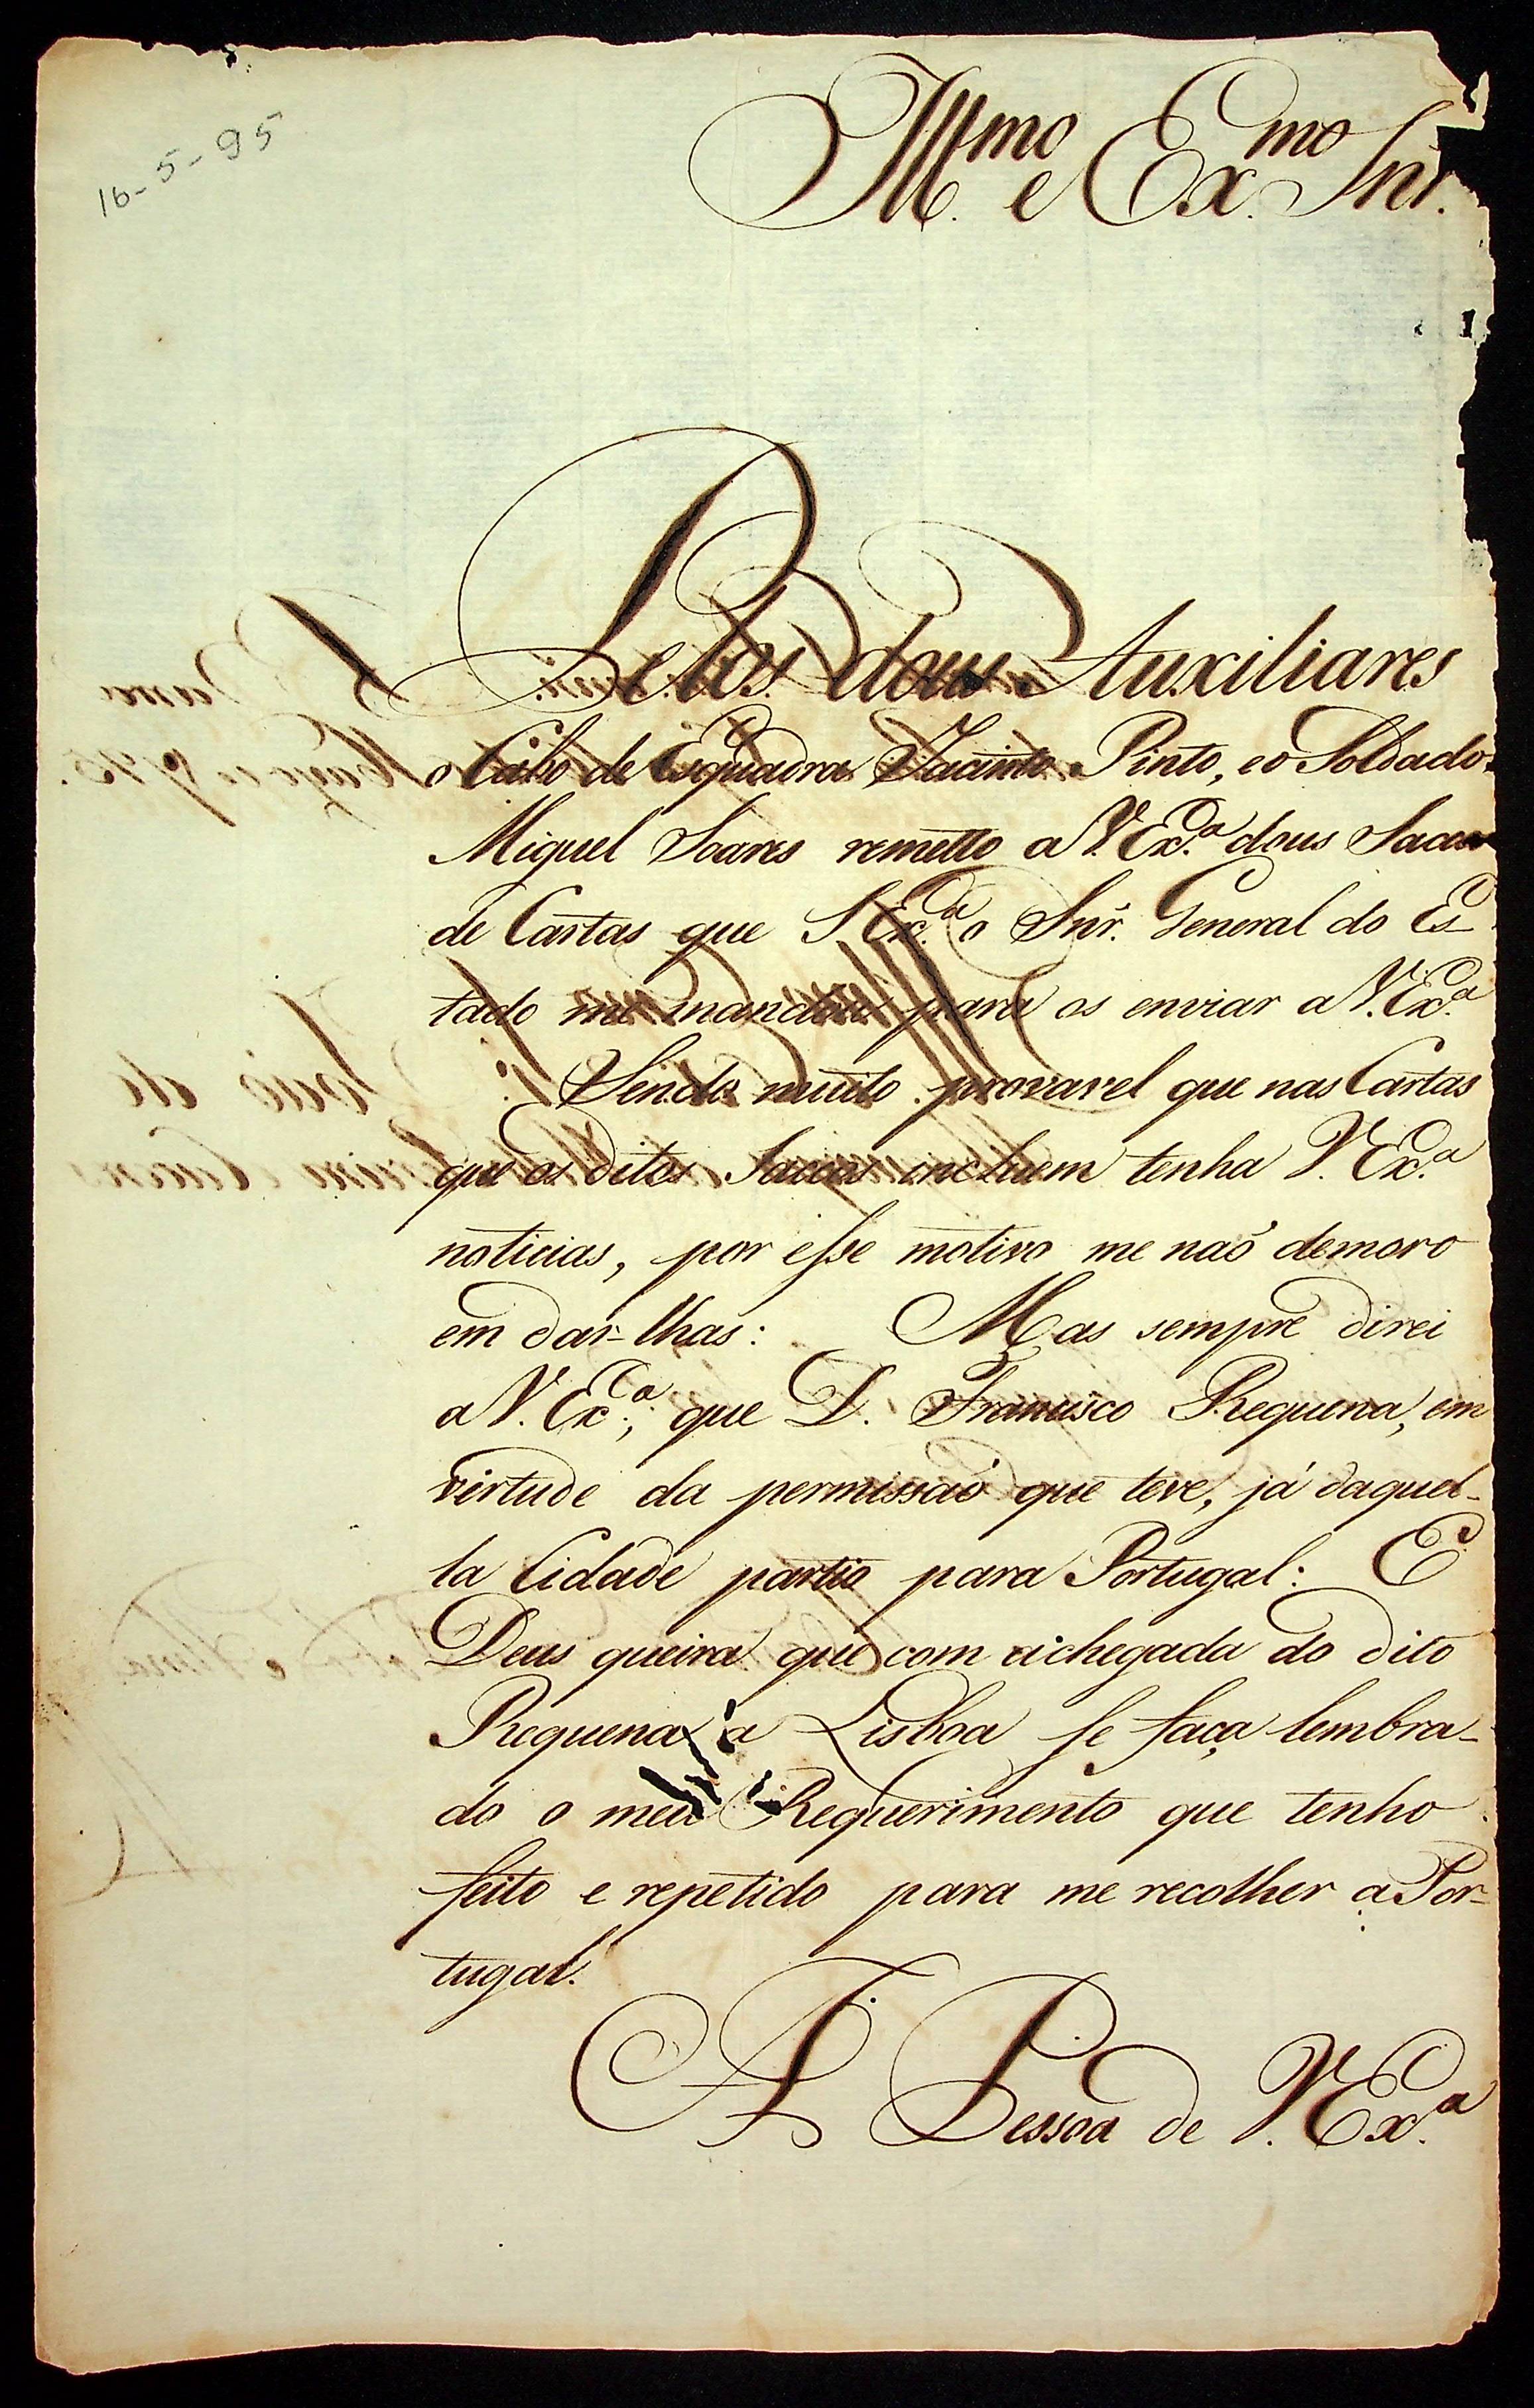 16-5-95
Ill.mo e Ex.mo Snr.
Pelos dous Auxiliares
o Cabo de Esquadra Jacinto Pinto, eo Soldado
Miguel Soares remetto a V. Ex.ª dous Sacos
de Cartas que S Ex.ª o Snr. General do Es-
tado me mandou para os enviar a V. Ex.ª
Sendo muito provavel que nas Cartas
que os ditos Saccos incluem tenha V. Ex.ª
noticias, por esse motivo me naõ demoro
em dar-lhas: Mas sempre direi
a V. Ex.ª, que D. Francisco Requena, em
virtude da permissaõ que teve, já daquel-
la Cidade partio para Portugal: E
Deus queira que com achegada do dito
Requena a Lisboa se faça lembra-
do o meu Requerimento que tenho
feito e repetido para me recolher a Por-
tugal.
A Pessoa de V. Ex.ª